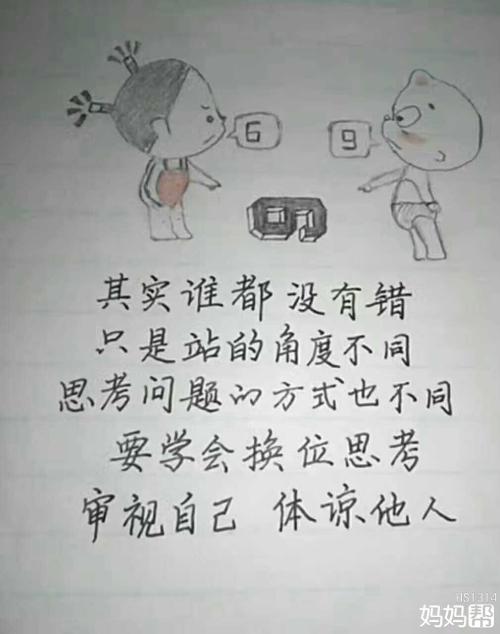 6
9
其实谁都没有错
只是站的角度不同
思考问题的方式也不同
要学会换位思考
审视自己 体谅他人
妈妈帮